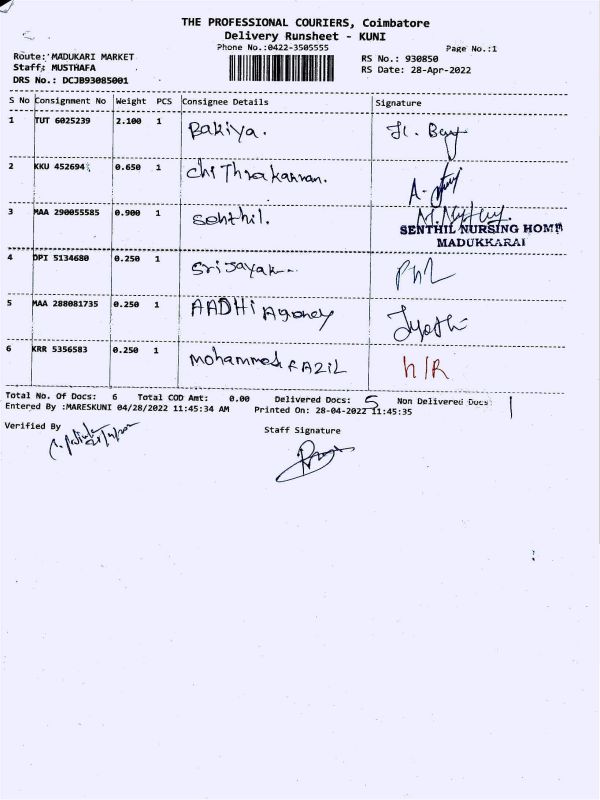 THE PROFESSIONAL COURIERS, Coimbatore
Delivery Runsheet - KUNI
Phone No.:0422-3505555
Page No.:1
Route: MADUKARI MARKET
RS No.: 930850
Staff: MUSTHAFA
RS Date: 28-Apr-2022
DRS No.: DCJB93085001
S No Consignment No Weight PCS Consignee Details Signature
1 TUT 6025239 2.100 1 Bakiya.
2 KKU 452694 0.650 1 Chithrakannan.
3 MAA 290055585 0.900 1 Senthil.
SENTHIL NURSING HOME
MADUKKARAI
4 DPI 5134680 0.250 1
5 MAA 288081735 0.250 1 AADHi Agency Jyothi
6 KRR 5356583 0.250 1 Mohammed RAZIL N/R
Total No. Of Docs: 6 Total COD Amt: 0.00 Delivered Docs: 5 Non Delivered Docs: 1
Entered By :MARESKUNI 04/28/2022 11:45:34 AM Printed On: 28-04-2022 11:45:35
Verified By
Staff Signature